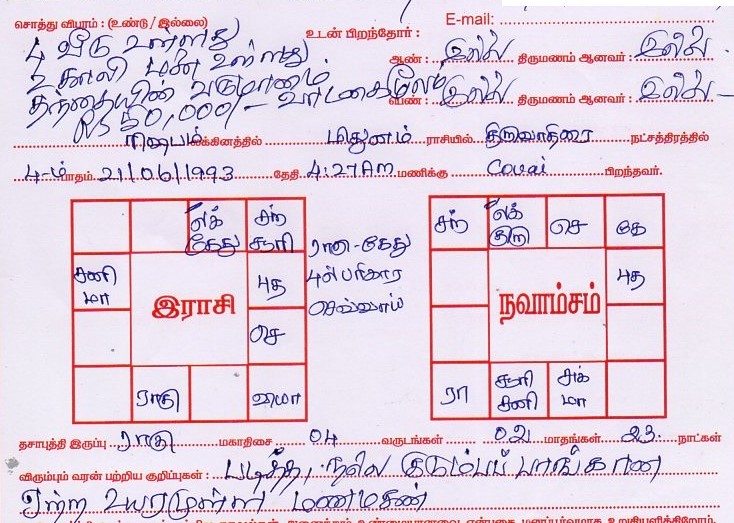 சொத்து விபரம் : (உண்டு / இல்லை)
E-mail:
4 வீடு உள்ளது
உடன் பிறந்தோர் :
2 காலி மனை உள்ளது
ஆண் : இல்லை திருமணம் ஆனவர் : இல்லை
தந்தையின் வருமானம்
பெண் : இல்லை திருமணம் ஆனவர் : இல்லை -
Rs 50,000/- வாடகைமூலம்
ரிஷபம் லக்கினத்தில் மிதுனம் ராசியில் திருவாதிரை நட்சத்திரத்தில்
4-ம் பாதம் 21/06/1993 தேதி 4:27Am மணிக்கு Covai பிறந்தவர்.
லக் கேது
சுக் சூரி
சனி மா
புத
செ
ராகு
வுமா
இராசி
ராகு - கேது
பரிகார
செவ்வாய்
சுக்
லக் குரு
செ
கே
புத
நவாம்சம்
ரா
சூரி சனி
சுக் மா
தசாபுத்தி இருப்பு ராகு மகாதிசை 04 வருடங்கள் 02 மாதங்கள் 23 நாட்கள்
விரும்பும் வரன் பற்றிய குறிப்புகள் : படித்த, நல்ல குடும்பப் பாங்கான
ஏற்ற உயரமுள்ள மணமகன்